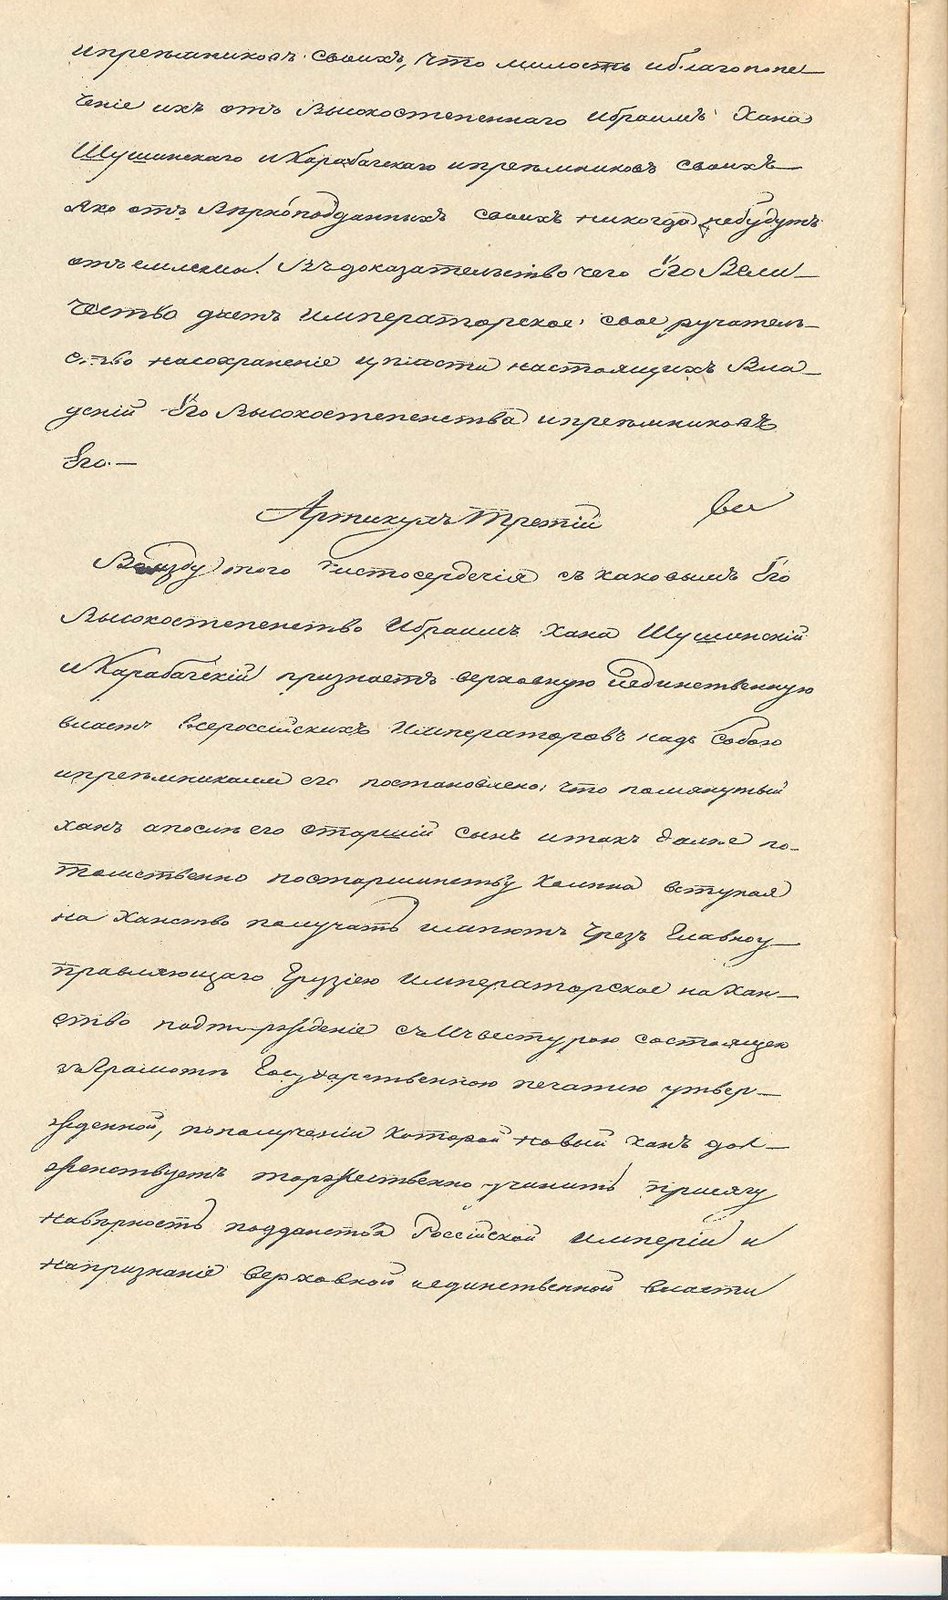 ипреемниковъ своихъ, что милость иблагопопе-
ченіе ихъ отъ Высокостепеннаго Ибраимъ Хана
Шушинскаго иКарабагскаго ипреемниковъ своихъ
яко отъ Вѣрноподданныхъ своихъ никогда небудутъ
отъемлемы. Въдоказательство чего Его Вели-
чество даетъ Императорское свое ручатель-
ство насохраненіе цѣлости настоящихъ Вла-
деній Его Высокостепенства ипреемниковъ
Его.-
Артикулъ Третій
Вмзду того чистосердечія съ каковымъ Его
Высокостепенство Ибраимъ Хана Шушинскій
иКарабагскій признаетъ верховную иединственную
власть всероссійскихъ Императоровъ надъ собою
ипреемниками его постановлено, что помянутый
ханъ апосли его старшій сынъ итакъ далее по-
томственно постаршинству Колина вступая
на Ханство получать имѣютъ чрезъ Главноу-
правляющаго Грузіею Императорское наХан-
ство подтверждение съИнвеститурою состоящею
въГрамотѣ Государственною печатию утвер-
жденной, пополученіи которой новый ханъ дол-
женствуетъ торжественно учинить присягу
навѣрность подданства Россійской Имперіи и
напризнаніе верховной иединственной власти